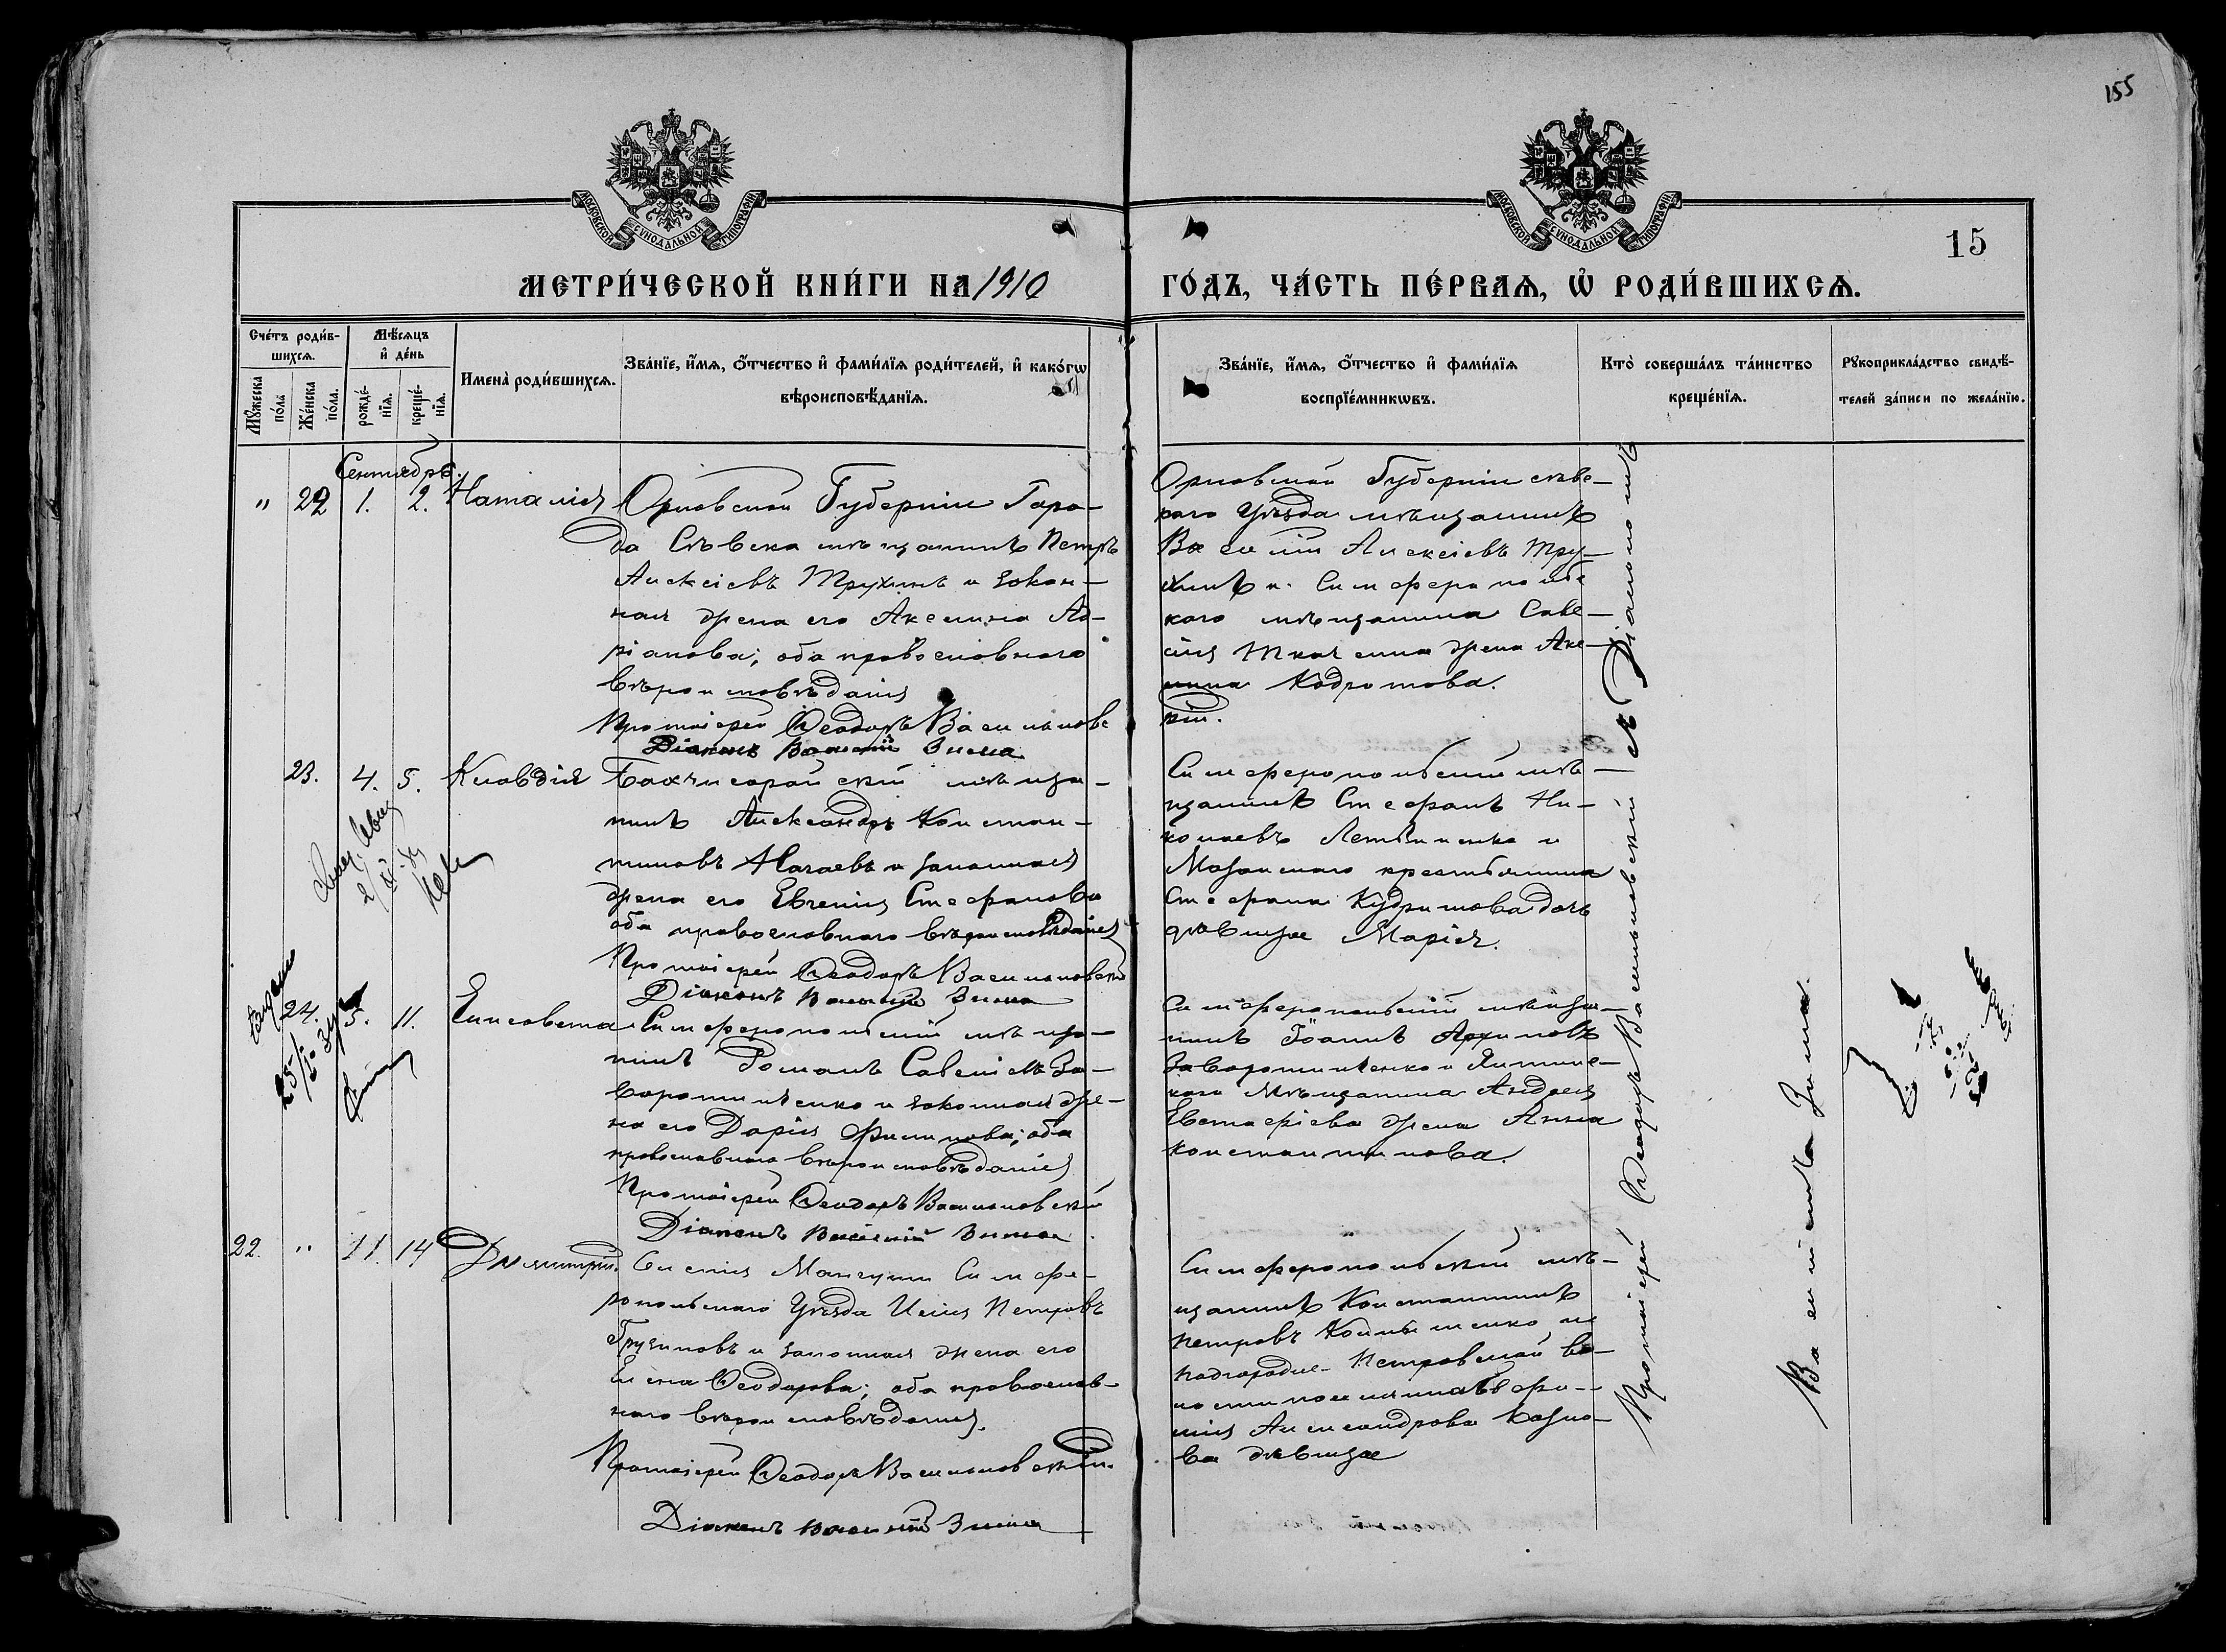 155
МОСКОВСКОЙ СѴНОДАЛЬНОЙ ТИПОГРАФІИ
МОСКОВСКОЙ СѴНОДАЛЬНОЙ ТИПОГРАФІИ
15
МЕТРИ́ЧЕСКОЙ КНИ́ГИ НА 1910
ГО́ДЪ, ЧА́СТЬ ПЕ́РВАѦ, Ѡ҆ РОДИ́ВШИХСѦ.
Сче́тъ роди́в-
шихсѧ.
Мꙋ́жеска
по́ла
Же́нска
по́ла.
Мѣ́сѧцъ
и҆ де́нь
рожде́-
нїѧ.
креще́-
нїѧ.
Имена̀ роди́вшихсѧ.
Зва́нїе, и҆́мѧ, ѻ҆́тчество и҆ фами́лїѧ роди́телей, и҆ како́гѡ
вѣроисповѣ́данїѧ.
Зва́нїе, и҆́мѧ, ѻ҆́тчество и҆ фами́лїѧ
воспрїе́мникѡвъ.
Кто̀ соверша́лъ та́инство
креще́нїѧ.
Рꙋкоприкла́дство свидѣ́-
телей за́писи по жела́нїю.
Сентябрь.
" 22 1. 2. Наталія
Орловской Губерніи Горо-
да Сѣвска мѣщанинъ Петръ
Алексіевъ Трухинъ и закон-
ная жена его Акелина Ад-
ріанова; оба православнаго
вѣроисповѣданія
Протоіерей Ѳеодоръ Васильковс
Діаконъ Василій Зима
Орловской Губерніи сѣвс-
каго Уѣзда мѣщанинъ
Василій Алексіевъ Тру-
хинъ и Симферопольс
каго мѣщанина Саве-
лія Ткаченка жена Аке-
лина Кодротова.
кій.
23. 4. 5. Клавдія
Бахчисарайскій мѣща-
нинъ Александръ Констан-
тиновъ Нагаевъ и законная
жена его Евгенія Стефанова
оба православнаго вѣроисповѣданія
Протоіерей Ѳеодоръ Васильковскій
Діаконъ Василій Зима
Симферопольскій мѣ-
щанинъ Стефанъ Ни-
колаевъ и
крестьянина
Стефана Кудринова дочь
дѣвица Марія.
24. 5. 11. Елисавета
Симферопольскій мѣща-
нинъ Романъ Савеліевъ За-
воротинченко и законная же-
на его Дарія Филипова; оба
православнаго вѣроисповѣданія
Протоіерей Ѳеодоръ Васильковскій
Діаконъ Василій Зима
Симферопольскій мѣща-
нинъ Іоаннъ
Заворотинченко и Ялтинс-
каго Мѣщанина Андрея
Евстафіева жена Анна
Константинова.
22. " 11. 14 Димитрій
Селенія Мангуши Симфе-
ропольскаго Уѣзда Илія Петровъ
Грузиновъ и законная жена его
Елена Ѳеодорова; оба православ-
наго вѣроисповѣданія.
Протоіерей Ѳеодоръ Васильковскій.
Діаконъ Василій Зима
Симферопольскій мѣ-
щанинъ Константинъ
Петровъ и
Подгородне-Петровской во-
лости поселянина
Александрова
ва дѣвица
Протоіерей Ѳеодоръ Васильковскій съ Діакономъ
Василіемъ Зима.